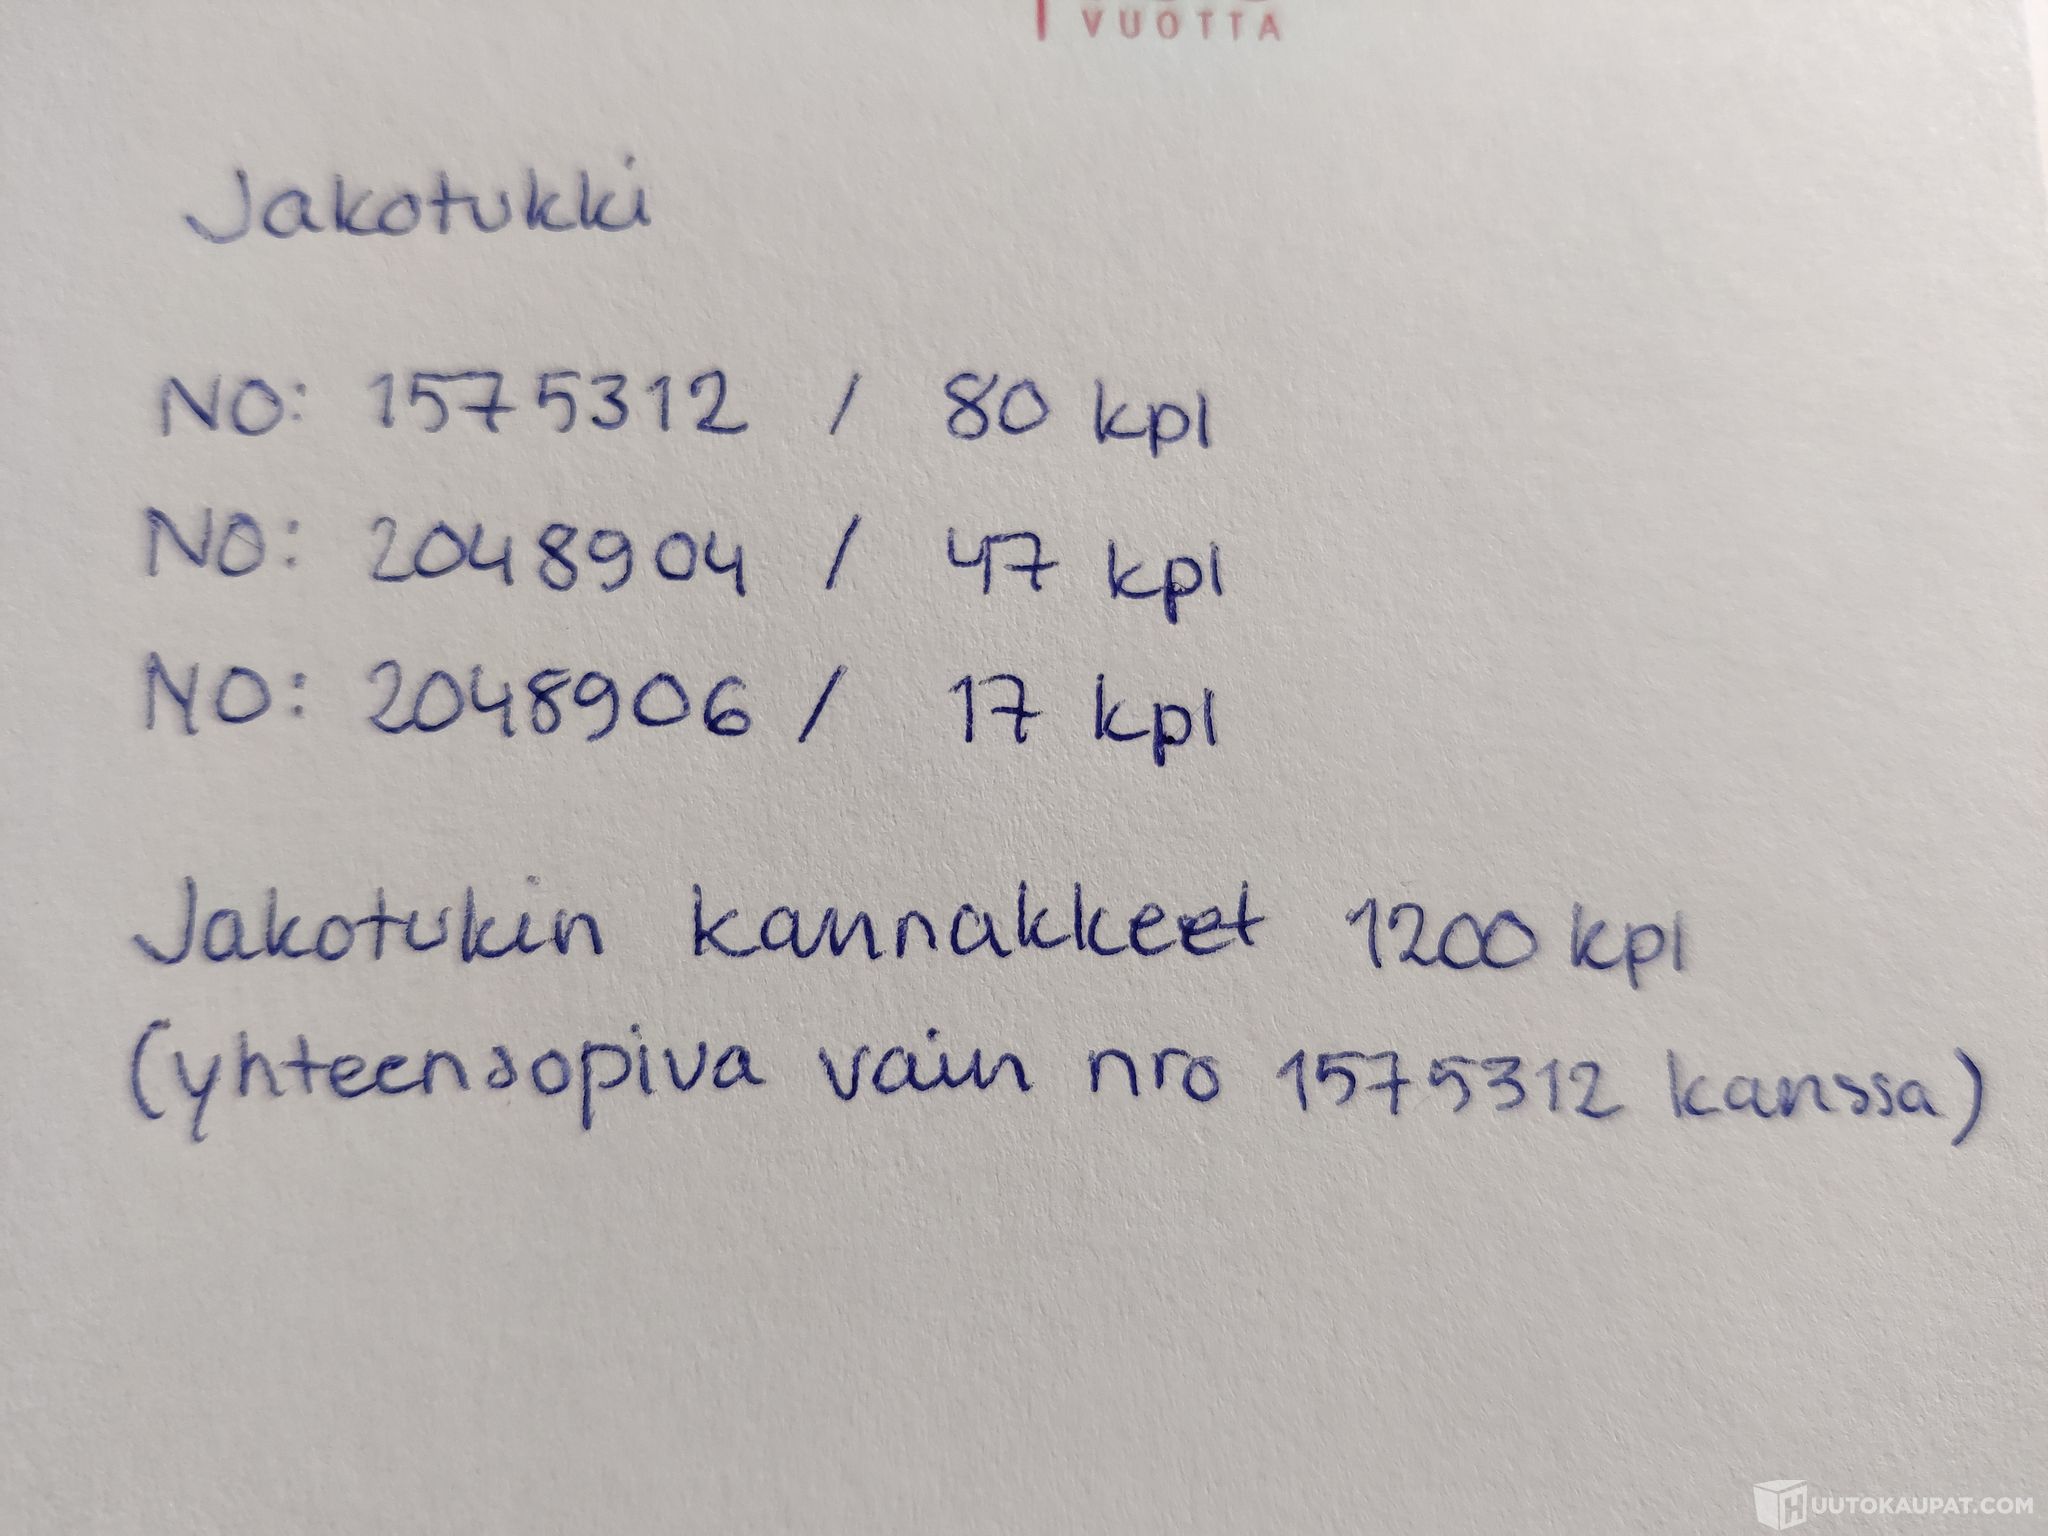 VUOTTA
Jakotukki
NO: 1575312 / 80 kpl
NO: 2048904 / 47 kpl
NO: 2048906 / 17 kpl
Jakotukin kannakkeet 1200 kpl
(yhteensopiva vain nro 1575312 kanssa)
HUUTOKAUPAT.COM